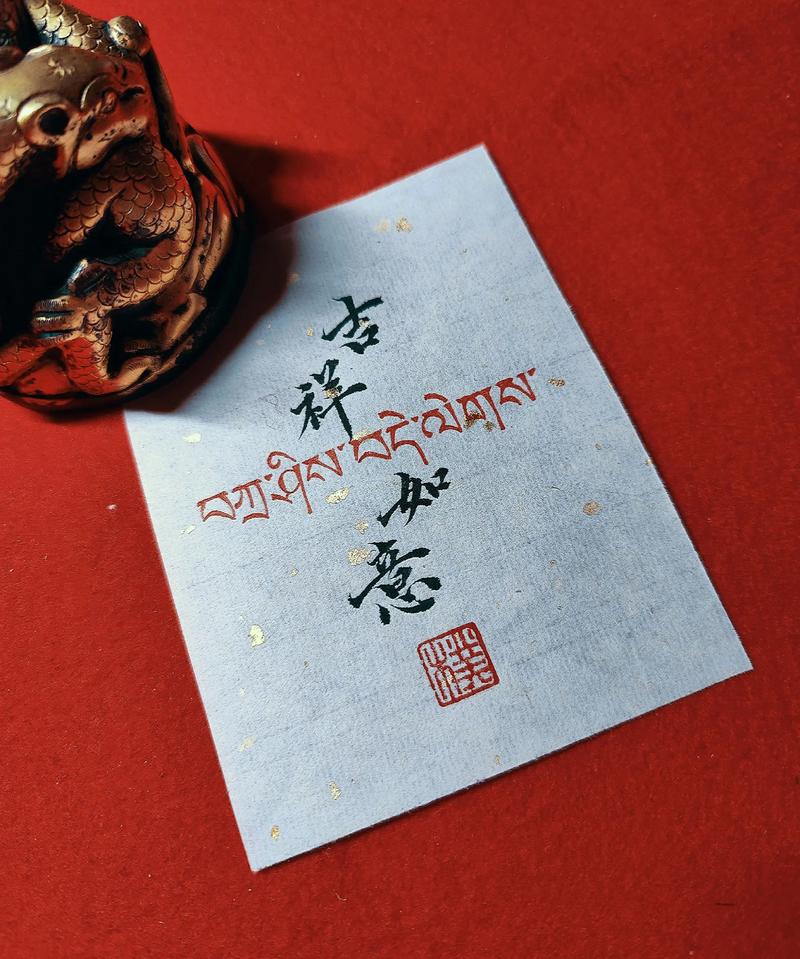 吉祥如意
བཀྲ་ཤིས་བདེ་ལེགས་